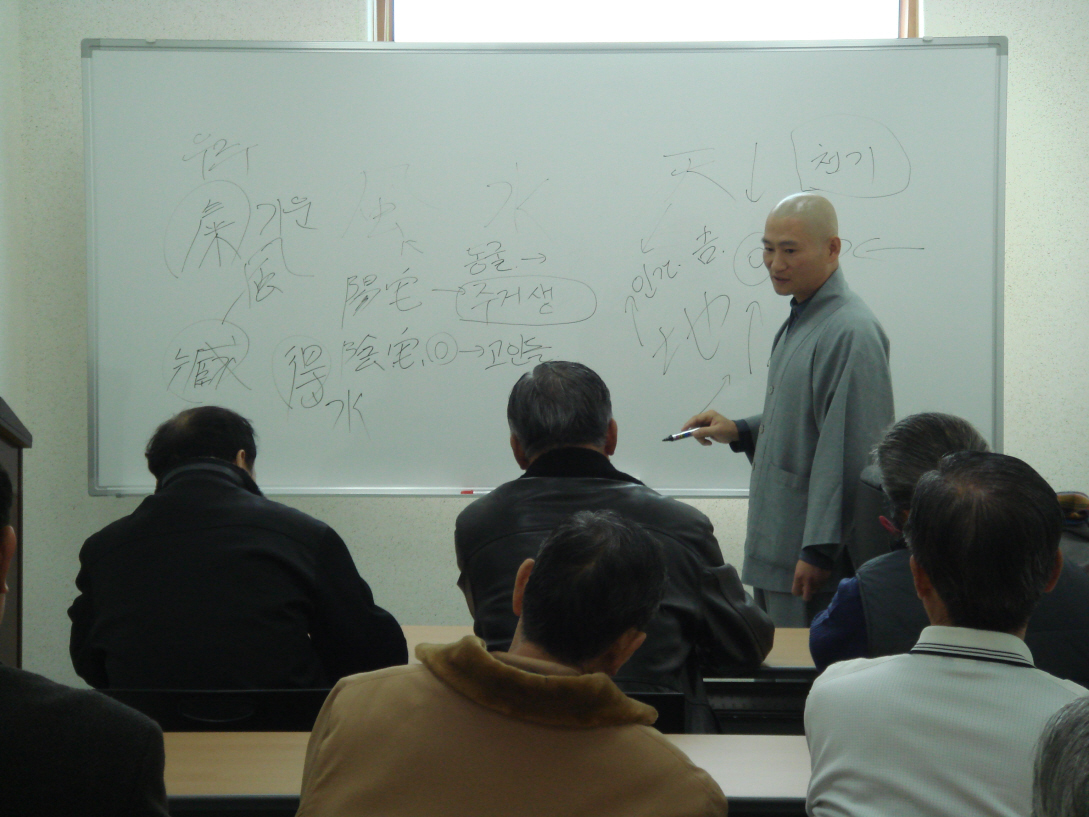 風 水 天 ↓ 천기
기운 동굴 →
風 陽宅 → 주거생 인간. 吉. ←
藏 得 陰宅. → 고인돌 ↑ 地 ↑
水